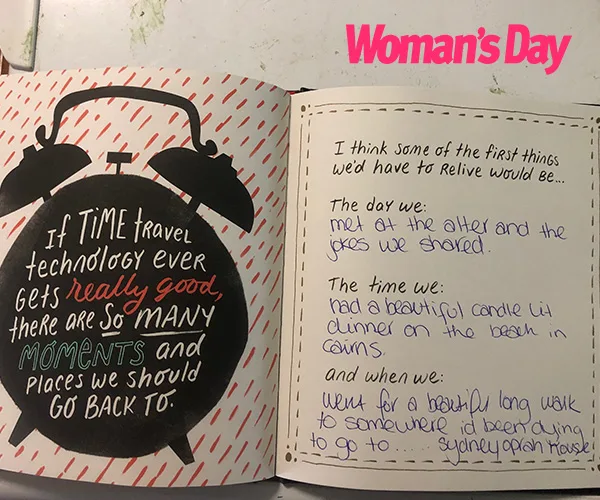 Woman's Day
If TIME travel
technology ever
gets really good,
there are so MANY
MOMENTS and
places we should
GO BACK TO.
I think some of the first things
we'd have to Relive would be...
The day we:
met at the alter and the
jokes we shared.
The time we:
had a beautiful candle lit
dinner on the beach in
cairns.
and when we:
went for a beautiful long walk
to somewhere id been dying
to go to..... sydney oprah House